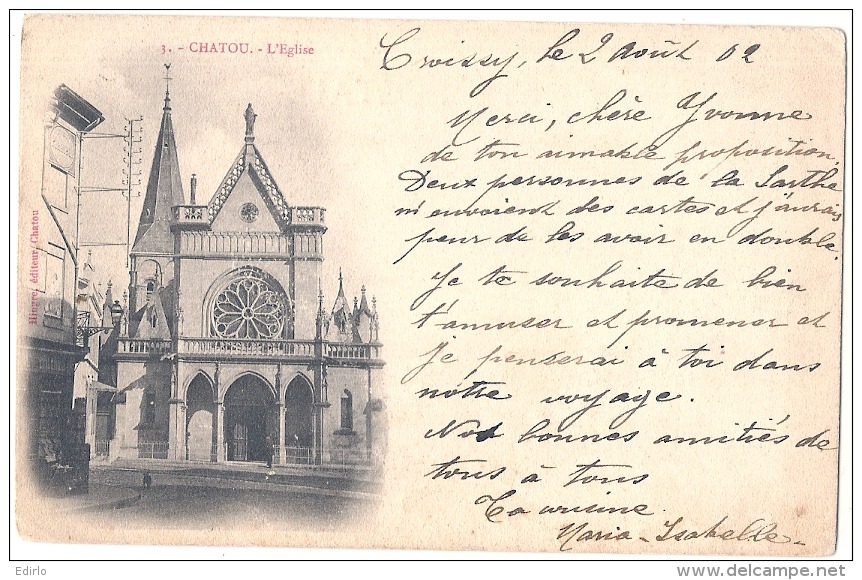 3. - CHATOU. - L'Eglise
Hingre, éditeur, Chatou
Croissy, le 2 Août 02
Merci, chère Yvonne
de ton aimable proposition.
Deux personnes de la Sarthe
m'envoient des cartes et j'aurais
peur de les avoir en double.
Je te souhaite de bien
t'amuser et promener et
je penserai à toi dans
notre voyage.
Nos bonnes amitiés de
tous à tous
Ta cousine
Maria-Isabelle-
Edirlo
www.delcampe.net